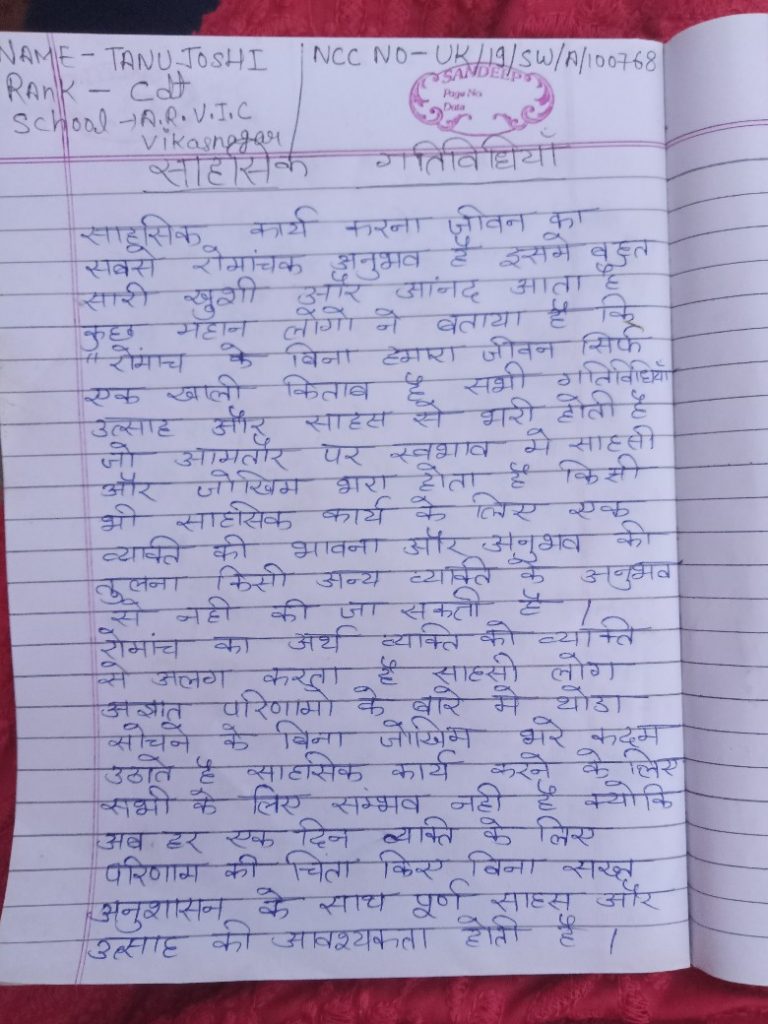 NAME - TANU JOSHI
NCC NO - UK/19/SW/A/100768
RANK - Cdt
School → A.R.V.I.C
Vikasnagar
SANDEEP
Page No.
Date
साहसिक गतिविधियाँ
साहसिक कार्य करना जीवन का
सबसे रोमांचक अनुभव है इसमे बहुत
सारी खुशी और आंनद आता है
कुछ महान लोगो ने बताया है कि
"रोमांच के बिना हमारा जीवन सिर्फ
एक खाली किताब है सभी गतिविधियाँ
उत्साह और साहस से भरी होती है
जो आमतौर पर स्वभाव मे साहसी
और जोखिम भरा होता है किसी
भी साहसिक कार्य के लिए एक
व्यक्ति की भावना और अनुभव की
तुलना किसी अन्य व्यक्ति के अनुभव
से नही की जा सकती है ।
रोमांच का अर्थ व्यक्ति को व्यक्ति
से अलग करता है साहसी लोग
अज्ञात परिणामो के बारे मे थोडा
सोचने के बिना जोखिम भरे कदम
उठाते है साहसिक कार्य करने के लिए
सभी के लिए सम्भव नही है क्योकि
अब हर एक दिन व्यक्ति के लिए
परिणाम की चिंता किए बिना सख्त
अनुशासन के साथ पूर्ण साहस और
उत्साह की आवश्यकता होती है ।